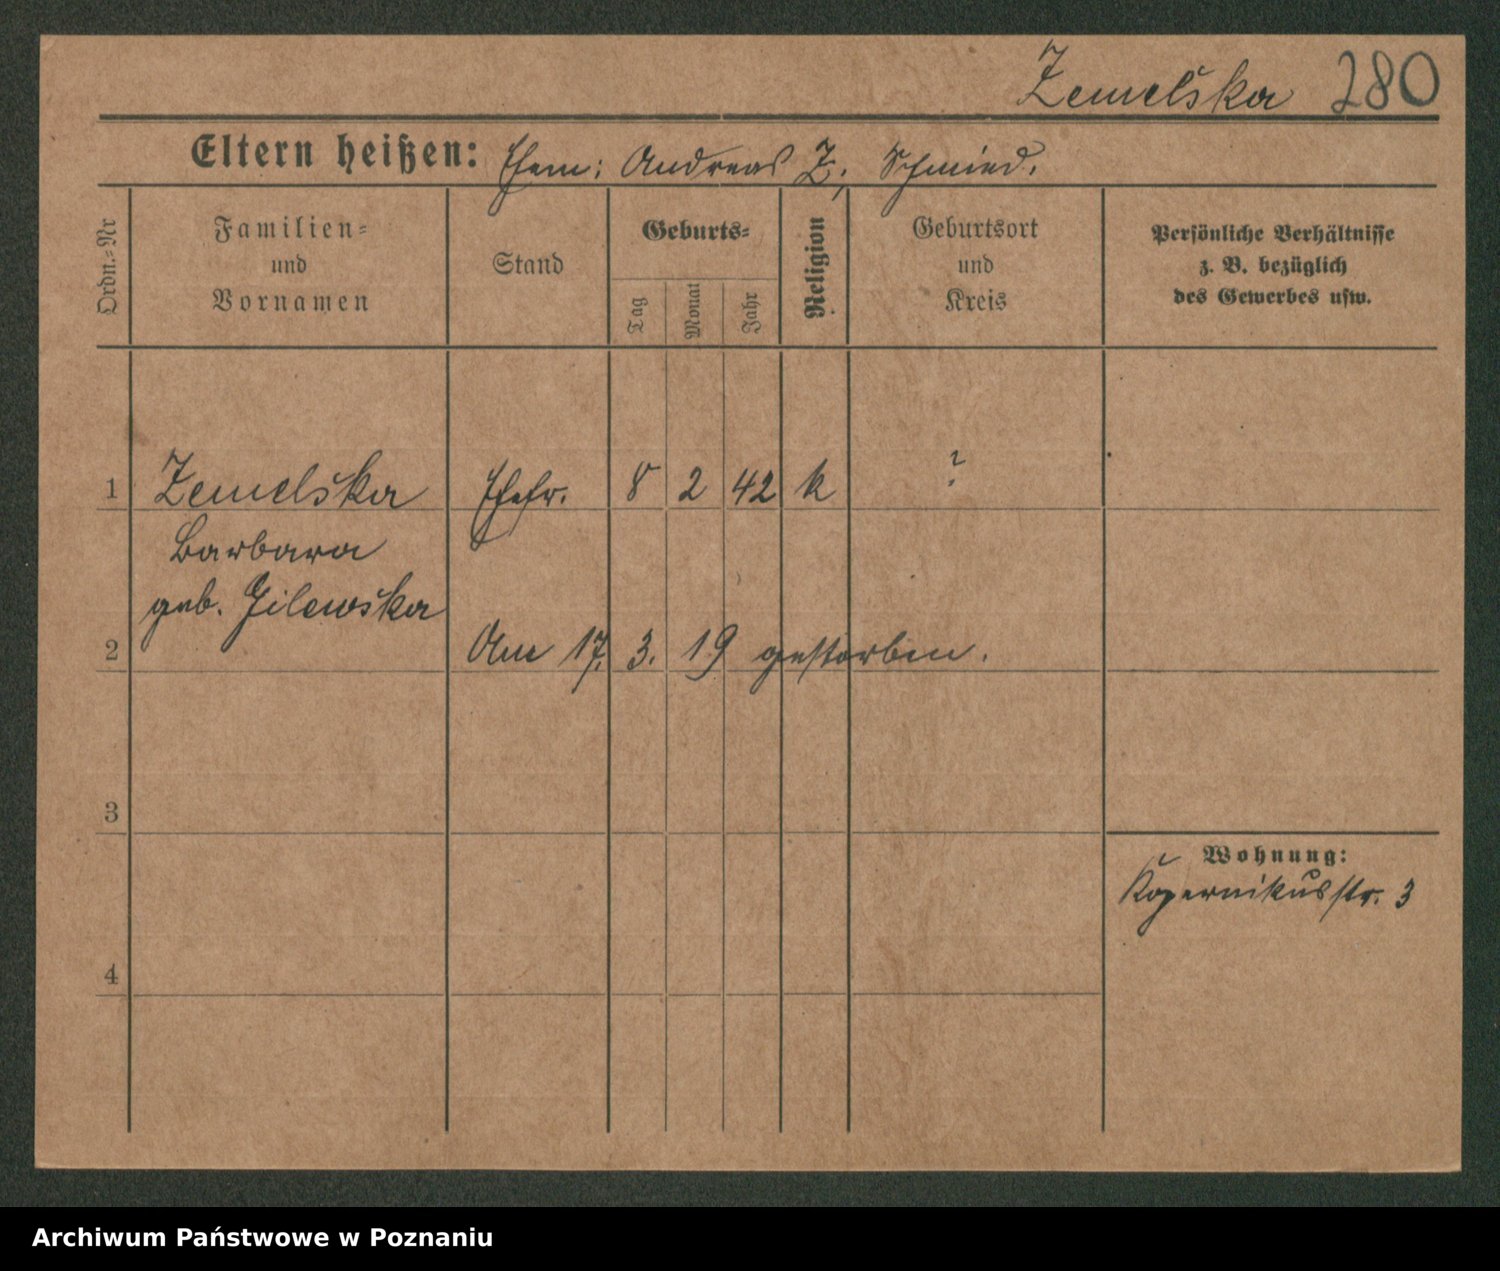 Zemelska 280
Eltern heißen: Ehem: Andreas Z, Schmied.
Ordn.-Nr
Familien-
und
Vornamen
Stand
Geburts-
Tag
Monat
Jahr
Religion
Geburtsort
und
Kreis
Persönliche Verhältnisse
z. B. bezüglich
des Gewerbes usw.
1 Zemelska Ehefr. 8 2 42 k ?
Barbara
geb. Gilewska
2 Am 17. 3. 19 gestorben.
3
Wohnung:
Kopernikusstr. 3
4
Archiwum Państwowe w Poznaniu